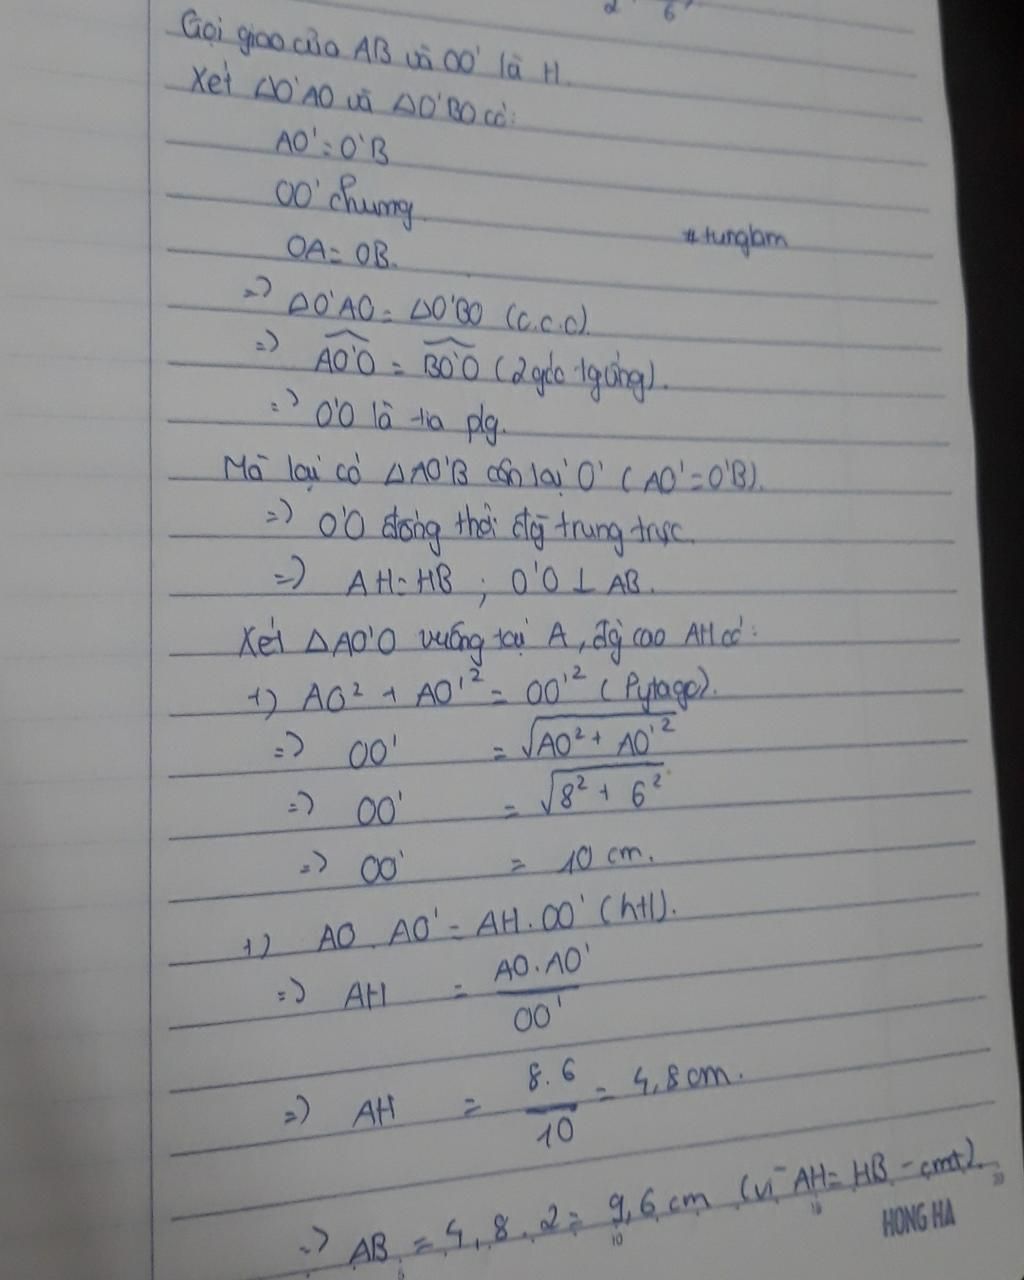 2 6
Gọi giao của AB và OO' là H.
Xét ΔO'AO và ΔO'BO có:
AO' = O'B
OO' chung
#tunglam
OA = OB.
=> ΔO'AO = ΔO'BO (c.c.c).
=> AO'O = BO'O (2 góc tg ứng).
=> O'O là tia plg.
Mà lại có ΔAO'B cân tại O' (AO' = O'B).
=> O'O đồng thời đg trung trực.
=> AH = HB ; O'O ⊥ AB.
Xét ΔAO'O vuông tại A, đg cao AH có:
+) AO² + AO'² = OO'² (Pytago).
=> OO' = √AO² + AO'²
=> OO' = √8² + 6²
=> OO' = 10 cm.
+) AO . AO' = AH . OO' (htl).
=> AH = AO.AO' / OO'
=> AH = 8.6 / 10 = 4,8 cm.
=> AB = 4,8 . 2 = 9,6 cm (vì AH = HB - cmt).
HONG HA